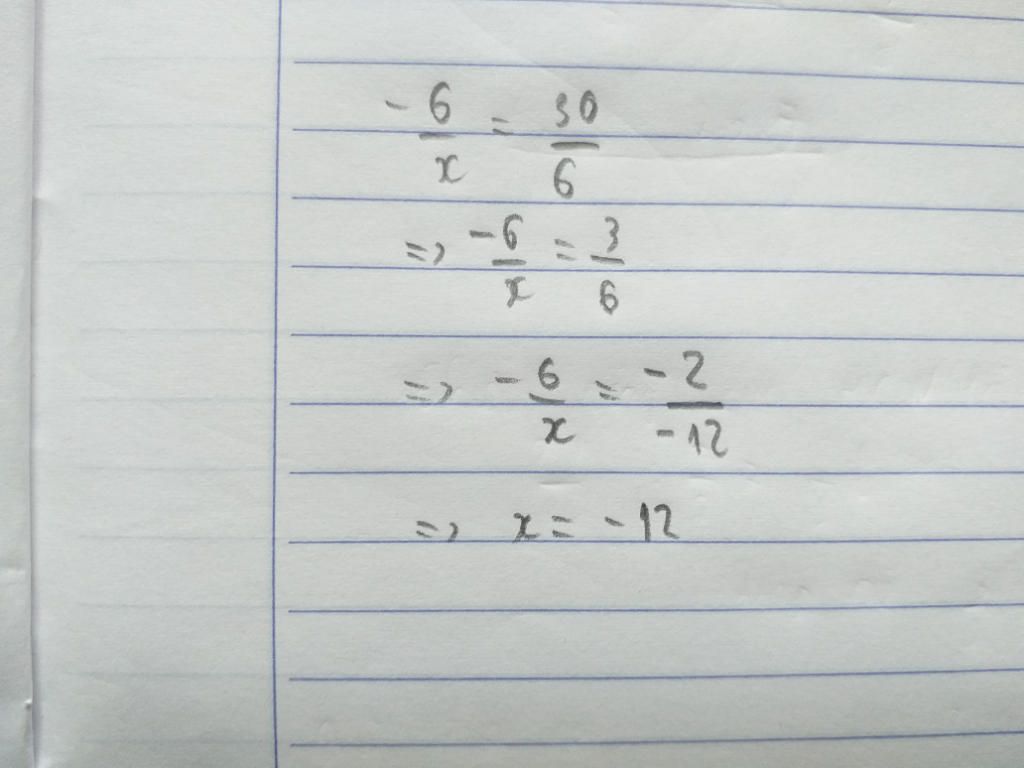 -6/x = 30/6
=> -6/x = 3/6
=> -6/x = -2/-12
=> x = -12